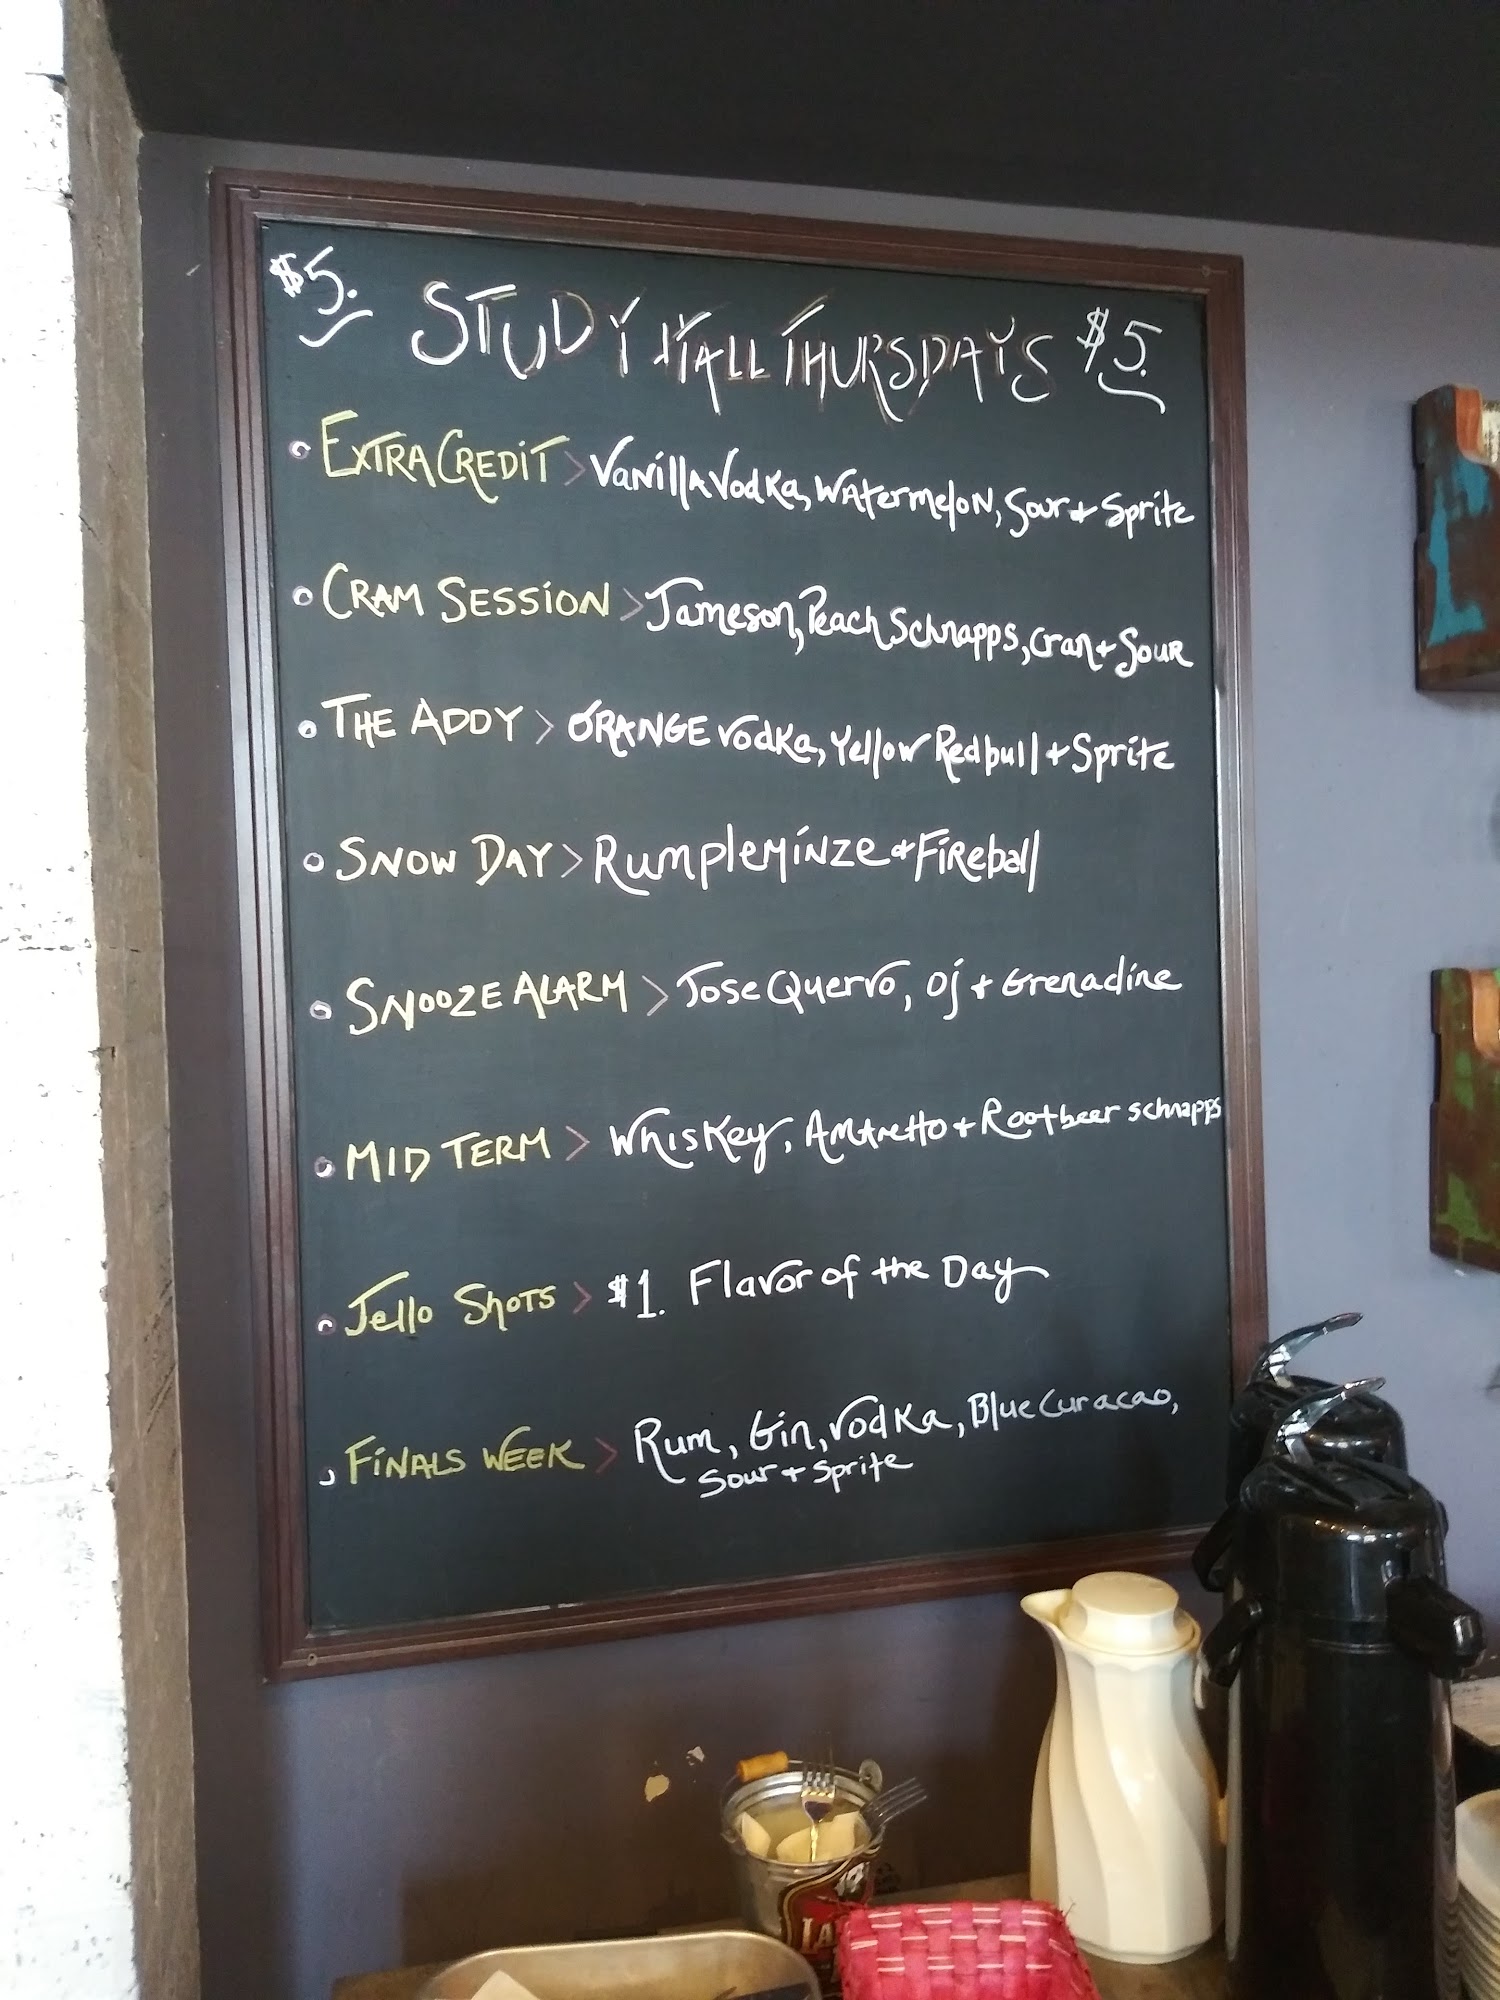 $5. STUDY HALL THURSDAYS $5.
EXTRA CREDIT > Vanilla Vodka, Watermelon, Sour + Sprite
CRAM SESSION > Jameson, Peach Schnapps, Cran + Sour
THE ADDY > ORANGE Vodka, Yellow Redbull + Sprite
SNOW DAY > Rumpleminze + Fireball
SNOOZE ALARM > Jose Quervo, OJ + Grenadine
MID TERM > Whiskey, Amaretto + Rootbeer schnapps
Jello Shots > $1. Flavor of the Day
FINALS WEEK > Rum, Gin, Vodka, Blue Curacao,
Sour + Sprite